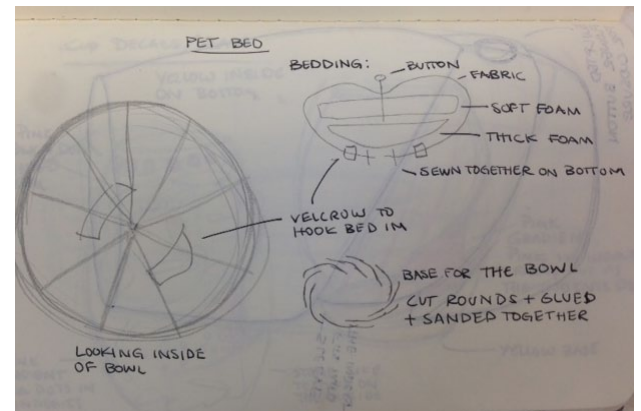 PET BED
BEDDING:
BUTTON
FABRIC
SOFT FOAM
THICK FOAM
SEWN TOGETHER ON BOTTOM
VELCROW TO
HOOK BED IM
BASE FOR THE BOWL
CUT ROUNDS + GLUED
+ SANDED TOGETHER
LOOKING INSIDE
OF BOWL
YELLOW INSIDE
ON BOTTOM
YELLOW BASE